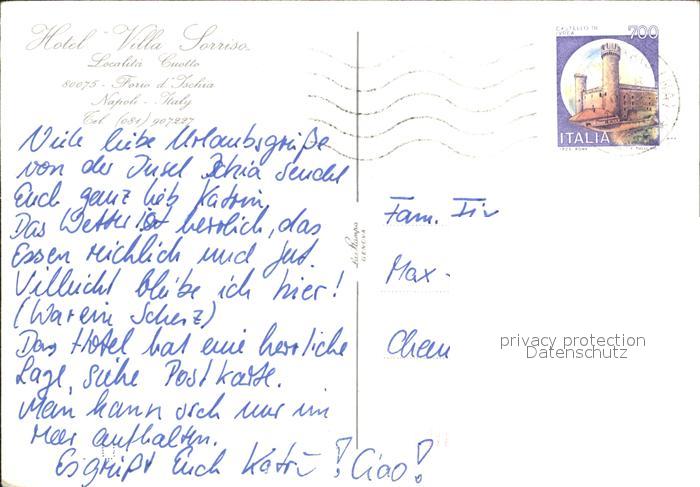 Hotel Villa Sorriso
Località Cuotto
80075 - Forio d'Ischia
Napoli - Italy
Tel. (081) 907227
CASTELLO DI
IVREA
700
ITALIA
Viele liebe Urlaubsgrüße
von der Insel Ischia sendet
Euch ganz lieb Katrin,
Das Wetter ist herrlich, das
Essen reichlich und gut.
Vielleicht bleibe ich hier!
(War ein Scherz)
Das Hotel hat eine herrliche
Lage, siehe Postkarte.
Man kann sich nur im
Meer aufhalten.
Es grüßt Euch Katrin! Ciao!
GENOVA
Fam.
Max-
Chem
privacy protection
Datenschutz